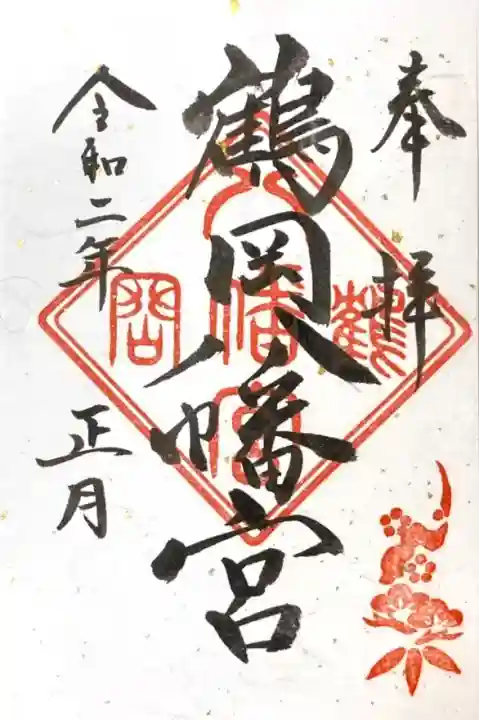 奉拝
鶴岡八幡宮
令和二年
正月